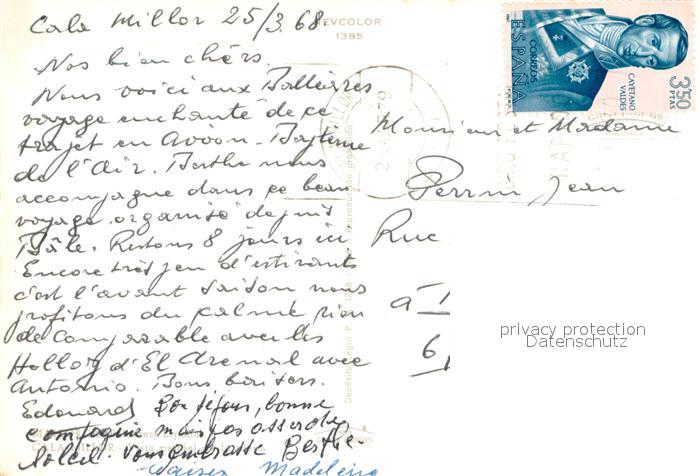 Cala Millor 25/3.68.
EVCOLOR
1385
Nos bien chers.
Nous voici aux Balléares
voyage enchanté de ce
trajet en Avion. Baptême
de l'Air. Berthe nous
accompagne dans ce beau
voyage organisé depuis
Bâle. Restons 8 jours ici
Encore très peu d'estivants
c'est l'avant saison nous
profitons du calme rien
de comparable avec les
d'El Arenal avec
Antonio. Bons baisers.
Edouard Bon séjour, bonne
compagnie mais pas assez de
soleil. Vous embrasse Berthe
Madeleine
Monsieur et Madame
Perrin Jean
Rue
à
6
CORREOS
ESPAÑA
CAYETANO
VALDES
3,50
PTAS
privacy protection
Datenschutz